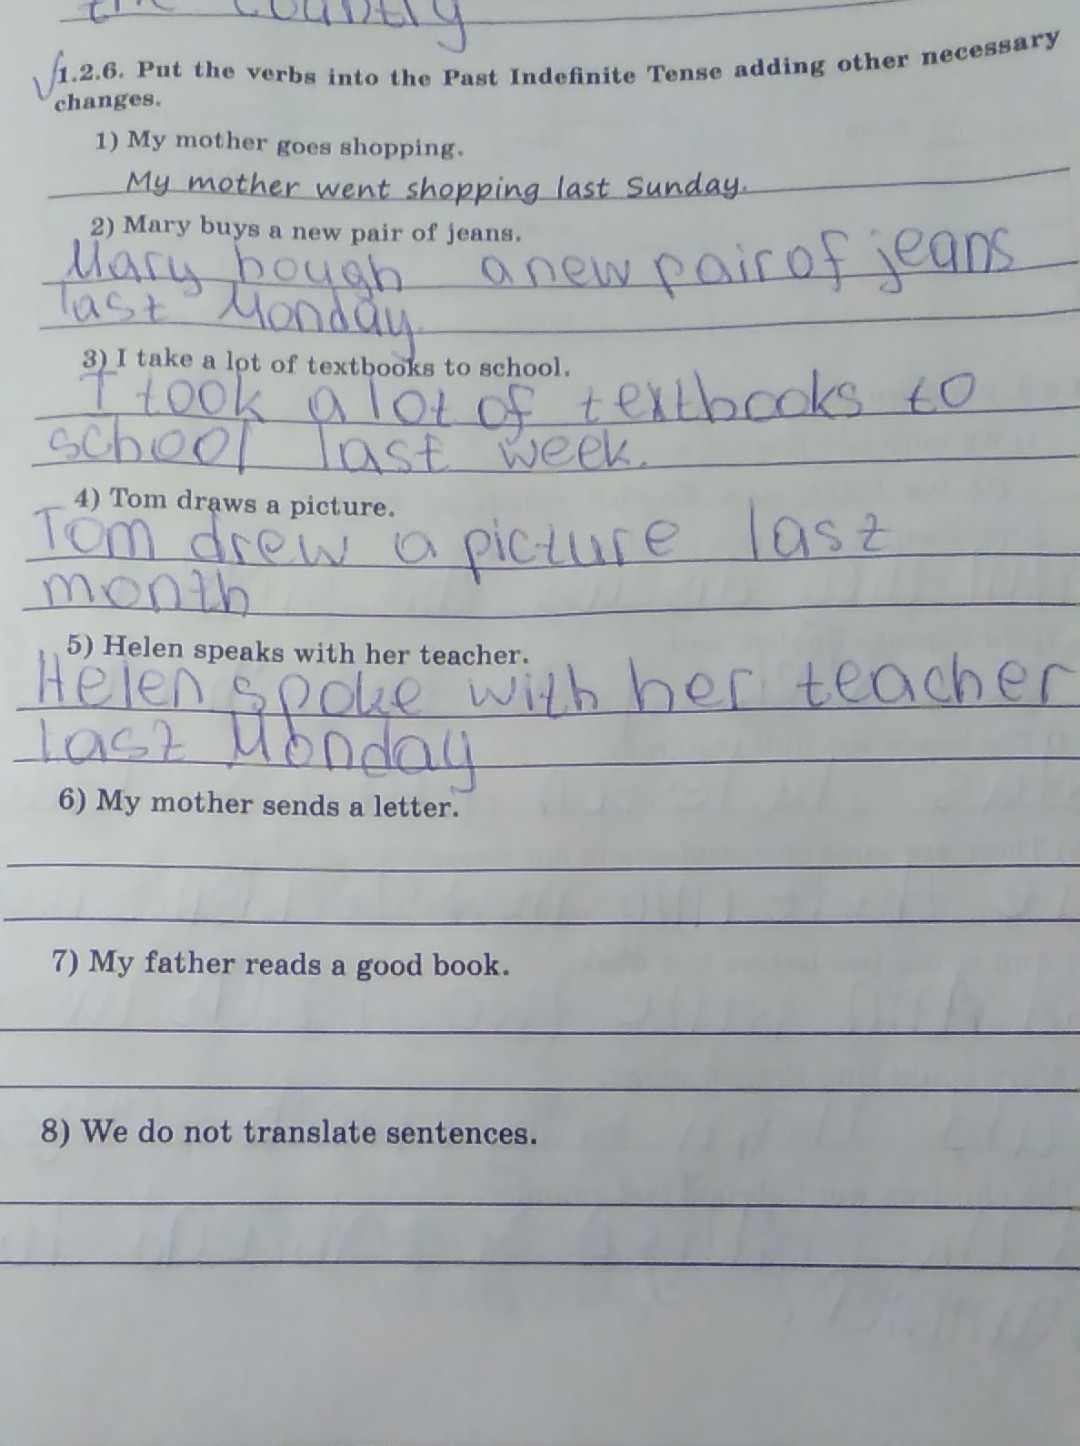 the country
1.2.6. Put the verbs into the Past Indefinite Tense adding other necessary
changes.
1) My mother goes shopping.
My mother went shopping last Sunday.
2) Mary buys a new pair of jeans.
Mary bough a new pair of jeans
last Monday.
3) I take a lot of textbooks to school.
I took a lot of textbooks to
school last week.
4) Tom draws a picture.
Tom drew a picture last
month
5) Helen speaks with her teacher.
Helen spoke with her teacher
last Monday
6) My mother sends a letter.
7) My father reads a good book.
8) We do not translate sentences.